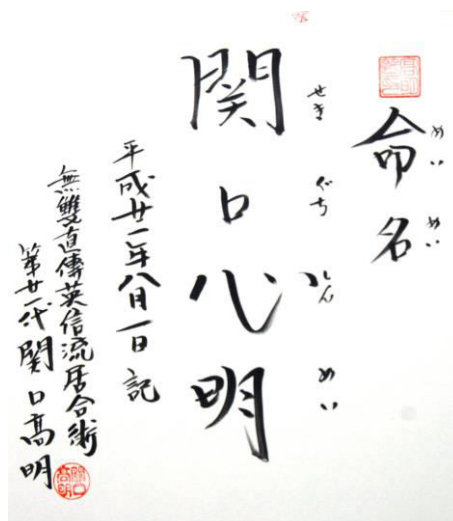 命名
めい めい
関口心明
せき ぐち しん めい
平成廿一年八月一日 記
無雙直傳英信流居合術
第廿一代 関口高明